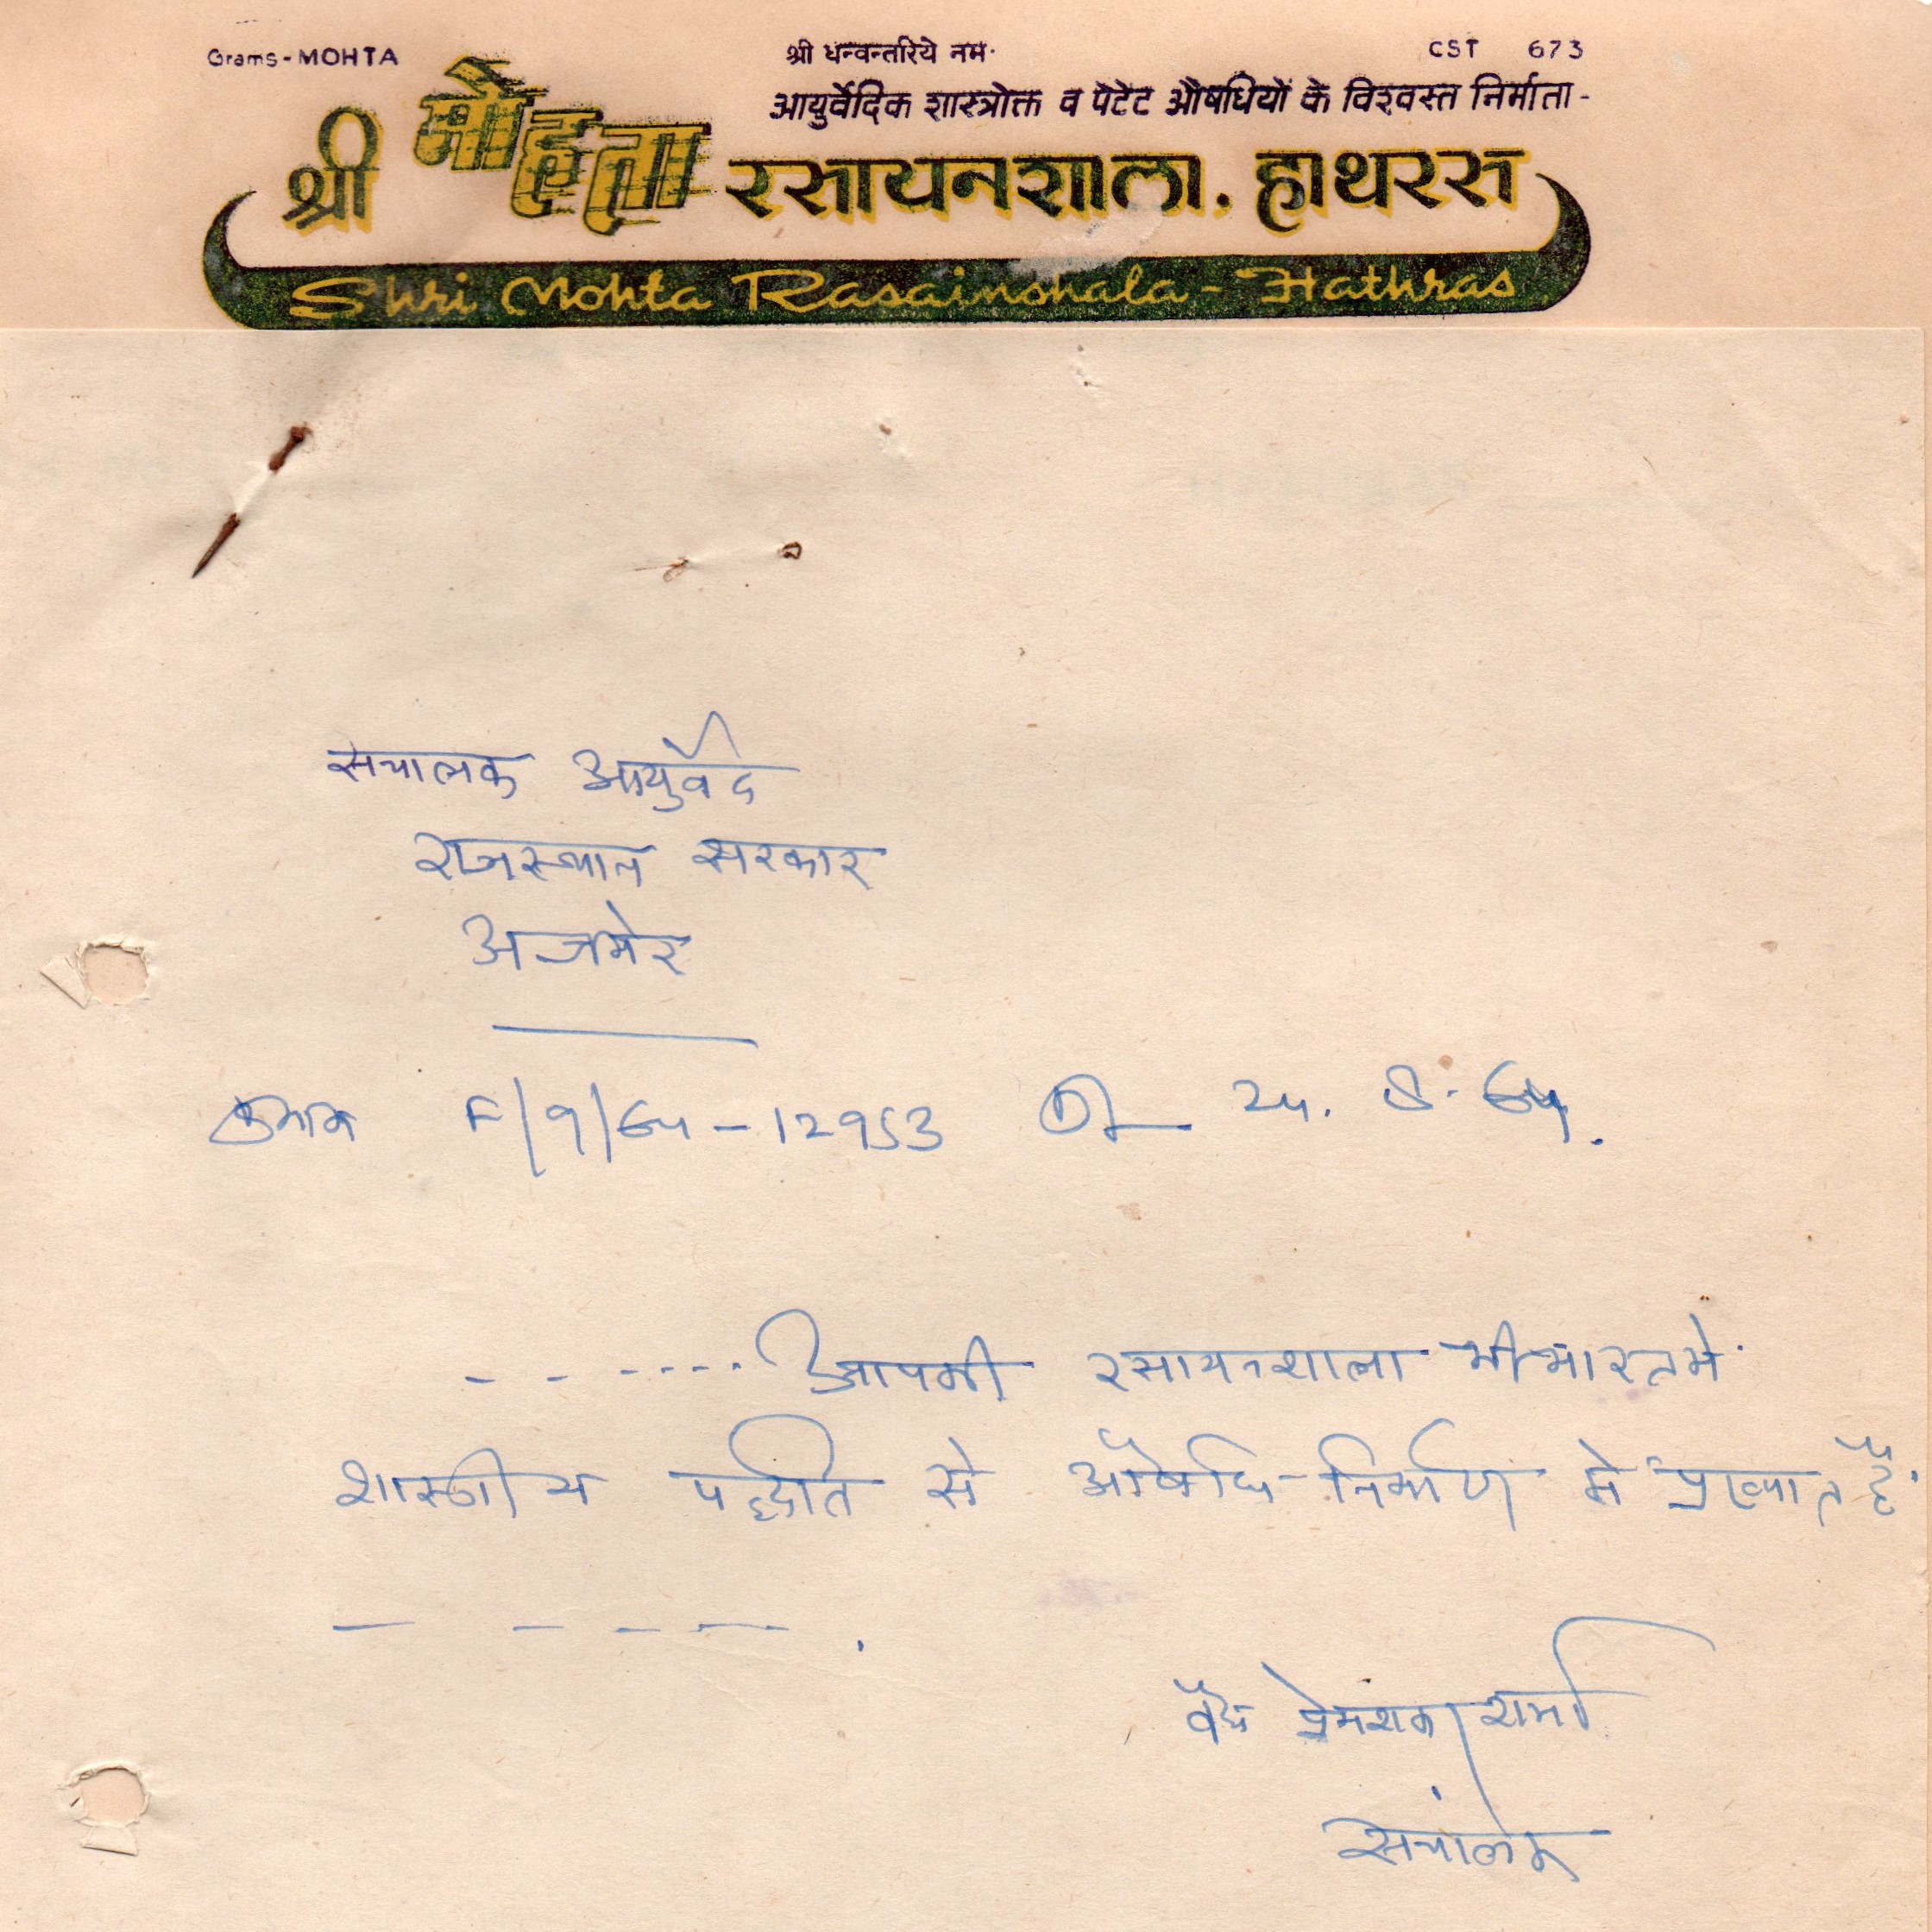 Grams - MOHTA
श्री धन्वन्तरिये नम·
CST 673
आयुर्वेदिक शास्त्रोक्त व पेटेंट औषधियों के विश्वस्त निर्माता -
श्री मोहता रसायनशाला. हाथरस
Shri Mohta Rasainshala - Hathras
सचालक आयुर्वेद
राजस्थान सरकार
अजमेर
क्रमाक F/9/64-12953 24. 8. 64.
- - ----- आपकी रसायनशाला भी भारत मे
शास्त्रीय पद्धति से औषधि-निर्माण मे प्रख्यात है.
- - - - - .
वैद्य शर्मा
संचालक